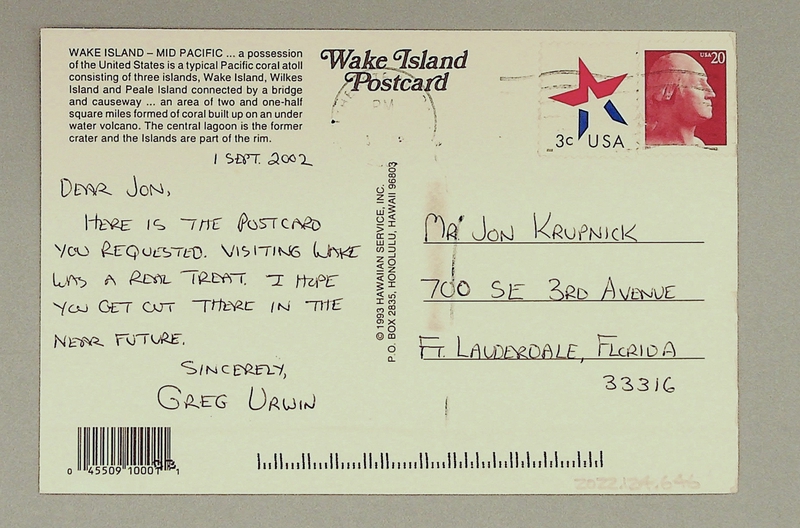 WAKE ISLAND – MID PACIFIC ... a possession
of the United States is a typical Pacific coral atoll
consisting of three islands, Wake Island, Wilkes
Island and Peale Island connected by a bridge
and causeway ... an area of two and one-half
square miles formed of coral built up on an under
water volcano. The central lagoon is the former
crater and the Islands are part of the rim.
Wake Island
Postcard
PM
3c USA
USA 20
1 SEPT. 2002
DEAR JON,
HERE IS THE POSTCARD
YOU REQUESTED. VISITING WAKE
WAS A REAL TREAT. I HOPE
YOU GET OUT THERE IN THE
NEAR FUTURE.
SINCERELY,
GREG URWIN
© 1993 HAWAIIAN SERVICE, INC.
P.O. BOX 2835, HONOLULU, HAWAII 96803
MR. JON KRUPNICK
700 SE 3RD AVENUE
FT. LAUDERDALE, FLORIDA
33316
0 45509 10001 1
2022.124.646